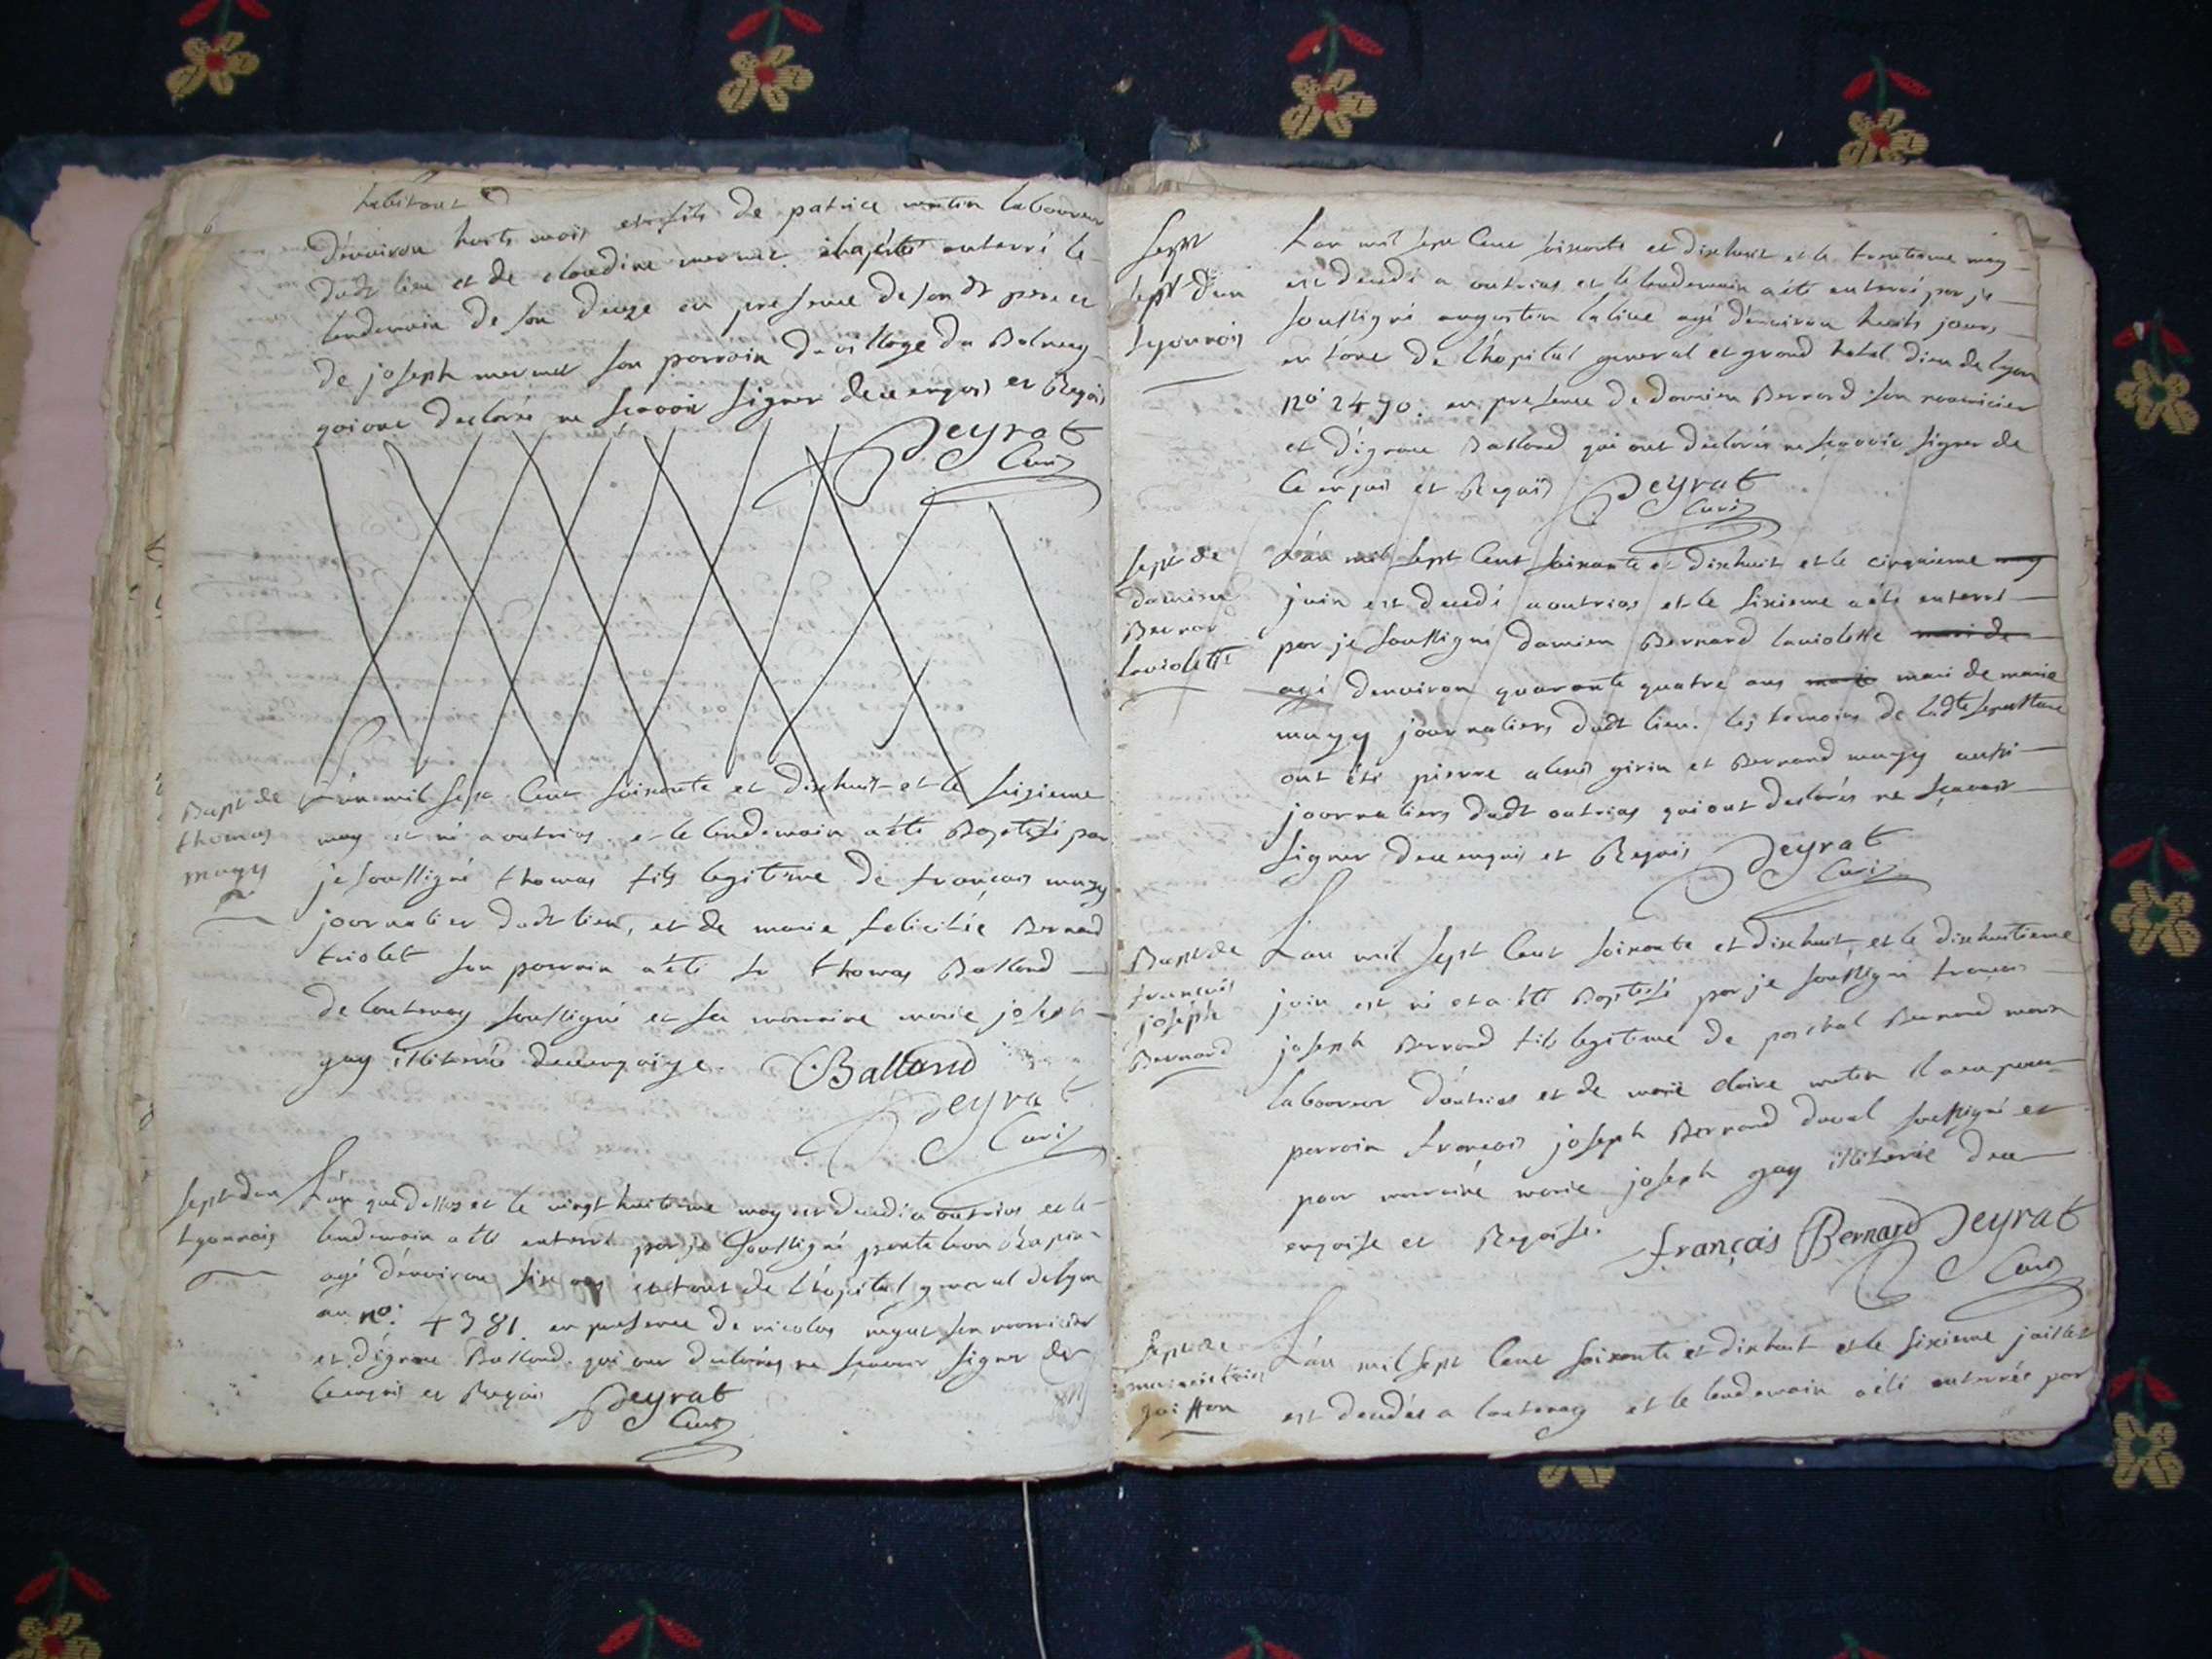 habitant
d'environ huits mois et fils de patrice mutin laboureur
dudt lieu et de claudine mermet. il a été enterré le
lendemain de son decez en presence de son dt pere et
de joseph mermet son parrain du village du Balmey
qui ont declarés ne sçavoir signer de ce enquis et Requis
Peyrat
Curé
Bapt de
thomas
mugy
L'an mil sept Cent soixante et dixhuit et le seizieme
may est né a outrias et le lendemain a été Baptisé par
je soussigné thomas fils legitime de françois mugy
journalier dudt lieu, et de marie felicitée Bernard
violet son parrain a été sr thomas Balland
de lantenay soussigné et sa marraine marie joseph
guy illiterée de ce enquise.
Balland
Peyrat
Curé
sept d'un
Lyonnois
L'an que dessus et le vingt huitieme may est decedé a outrias et le
lendemain a été enterré par je soussigné
agé d'environ six ans enfant de l'hopital general de lyon
au no: 4381. en presence de nicolas son nourricier
et d'ignace Balland qui ont declarés ne sçavoir signer de
ce enquis et Requis
Peyrat
Curé
Sept
sept d'un
Lyonnois
L'an mil sept Cent soixante et dixhuit et le trentieme may
est decedé a outrias et le lendemain a été enterré par je
soussigné augustin agé d'environ huits jours
enfant de l'hopital general et grand hotel dieu de lyon
no 2490. en presence de damien Bernard son nourricier
et d'ignace Balland qui ont declarés ne sçavoir signer de
ce enquis et Requis
Peyrat
Curé
sept de
damien
Bernard
laviolette
L'an mil sept Cent soixante et dixhuit et le cinquieme may
juin est decedé a outrias et le sixieme a été enterré
par je soussigné damien Bernard laviolette mari de
agé d'environ quarante quatre ans mari de marie
mugy journaliers dudt lieu. les temoins de ladte sepulture
ont été pierre alexis girin et Bernard mugy aussi
journaliers dudt outrias qui ont declarés ne sçavoir
signer de ce enquis et Requis
Peyrat
Curé
Bapt de
françois
joseph
Bernard
L'an mil sept Cent soixante et dixhuit, et le dixhuitieme
juin est né et a été Baptisé par je soussigné françois
joseph Bernard fils legitime de paschal Bernard
laboureur d'outrias et de marie claire mutin il a eu pour
parrain françois joseph Bernard duval soussigné et
pour marraine marie joseph guy illiterée de ce
enquise et Requise.
françois Bernard
Peyrat
Curé
sept de
goiffon
L'an mil sept Cent soixante et dixhuit et le sixieme juillet
est decedée a lantenay et le lendemain a été enterrée par